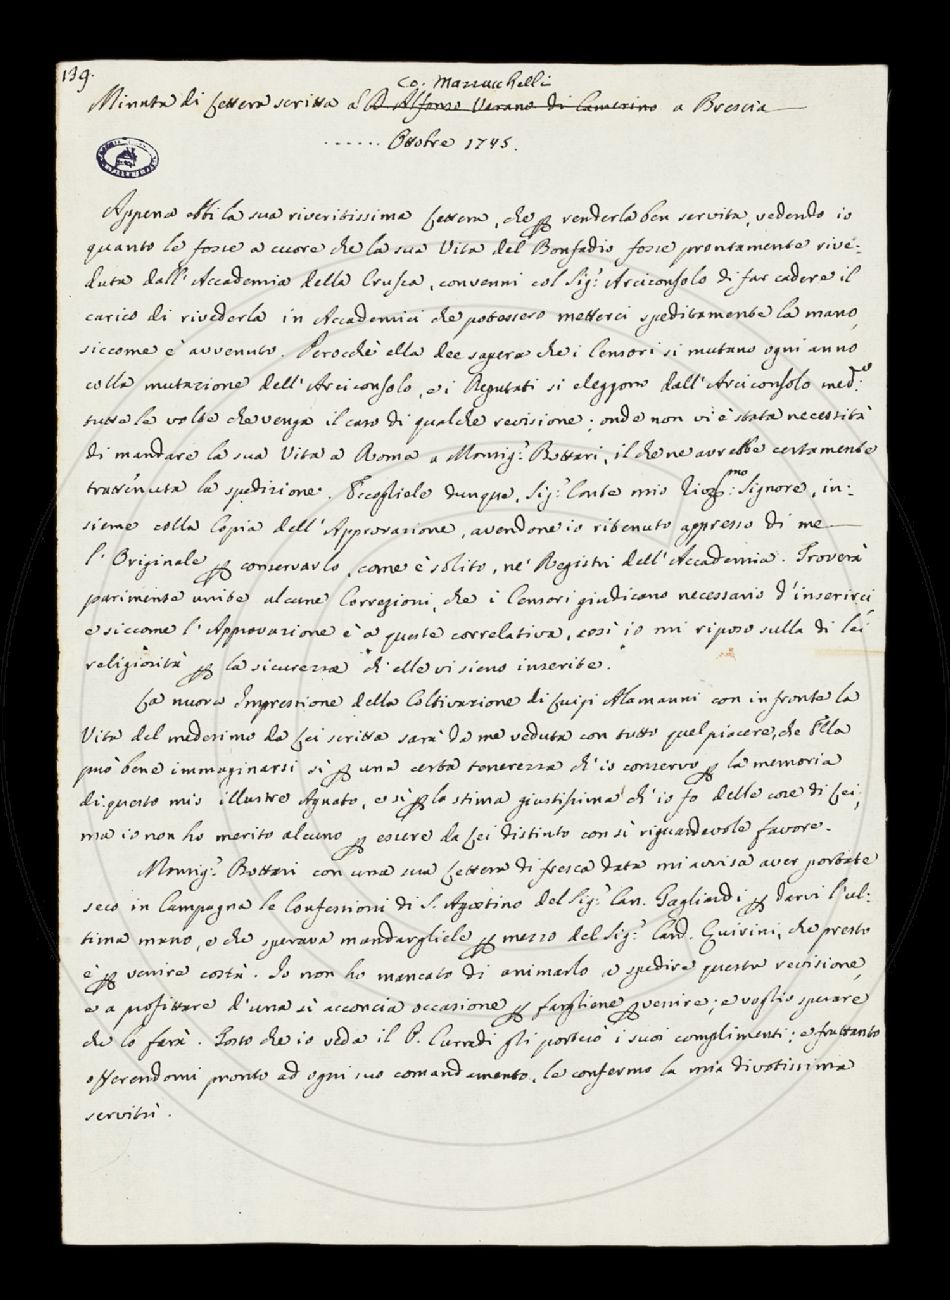 139.
Co: Mazzuchelli
Minuta di Lettera scritta al D. Alfonso Varano di Camerino a Brescia
...... Ottobre 1745.
Appena ebbi la sua riveritissima Lettera, che p renderla ben servita, vedendo io
quanto le fosse a cuore che la sua Vita del Bonfadio fosse prontamente rive-
duta dall'Accademia della Crusca, convenni col Sig.r Arciconsolo di far cadere il
carico di rivederla in Accademici che potessero metterci speditamente la mano,
siccome è avvenuto. Perocchè ella dee sapere che i Censori si mutano ogni anno
colla mutazione dell'Arciconsolo, e i Deputati si eleggono dall'Arciconsolo med.o
tutte le volte che venga il caso di qualche revisione; onde non vi è stata necessità
di mandare la sua Vita a Roma a Monsig.r Bottari, il che ne avrebbe certamente
trattenuta la spedizione. Eccogliele dunque, Sig.r Conte mio Signore, in-
sieme colla Copia dell'Approvazione, avendone io ritenuto appresso di me
l'Originale p conservarlo, come è solito, ne' Registri dell'Accademia. Troverà
parimente unite alcune Correzioni, che i Censori giudicano necessario d'inserirci,
e siccome l'Approvazione è a queste correlativa, così io mi riposo sulla di lei
religiosità p la sicurezza ch'elle vi sieno inserite.
La nuova Impressione della Coltivazione di Luigi Alamanni con in fronte la
Vita del medesimo da Lei scritta sarà da me veduta con tutto quel piacere, che Ella
può bene immaginarsi sì p una certa tenerezza ch'io conservo p la memoria
di questo mio illustre Agnato, e sì p lo stima giustissima ch'io fo delle cose di Lei,
ma io non ho merito alcuno p essere da Lei distinto con sì riguardevole favore.
Monsig.r Bottari con una sua Lettera di fresca data mi avvisa aver portate
seco in Campagna le Confessioni di S. Agostino del Sig.r Can. Gagliardi p darvi l'ul-
tima mano, e che sperava mandargliele p mezzo del Sig.r Card. Quirini, che presto
è p venire costà. Io non ho mancato di animarlo a spedire questa revisione,
e a profittare d'una sì acconcia occasione p fargliene pvenire; e voglio sperare
che lo farà. Tosto che io veda il P. Corradi gli porterò i suoi complimenti; e frattanto
offerendomi pronto ad ogni suo comandamento, le confermo la mia divotissima
servitù.